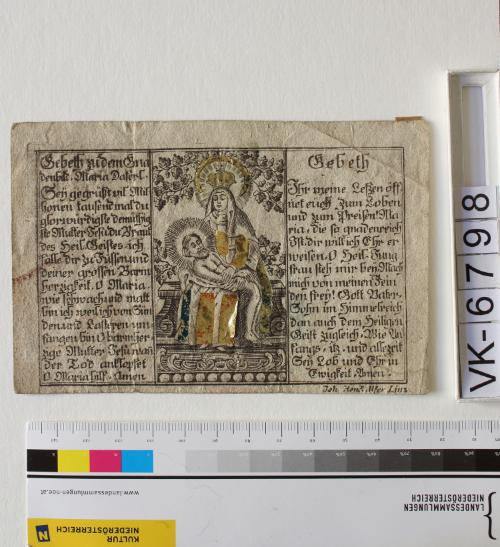 Gebeth zu dem Gna
denbild Maria Taferl.
Sey gegrüßt vil Mil
lionen tausend mal du
glorwürdigste demüthig
ste Mutter Jesu du Braut
des Heil. Geistes ich
falle dir zu Füssen und
deiner grossen Barm
hertzigkeit. O Maria
wie schwach und matt
bin ich weil ich von Sün
den und Lastern um
fangen bin O barmher
zige Mutter Jesu wan
der Tod anklopfet
O Maria hilf. Amen
Gebeth
Ihr meine Lefzen öff
net euch, zum Loben
und zum Preisen Ma
ria, die so gnadenreich
ist dir will ich Ehr er
weisen. O Heil. Jung
frau steh mir bey Mach
mich von meinen Fein
den frey! Gott Vater
Sohn im Himmelreich
dan auch dem Heiligen
Geist zugleich, Wie An
fangs, itz, und allezeit
Sey Lob und Ehr in
Ewigkeit Amen.
Joh. Linz
VK-6798
www.landessammlungen-noe.at
LANDESSAMMLUNGEN
NIEDERÖSTERREICH
KULTUR
NIEDERÖSTERREICH
N